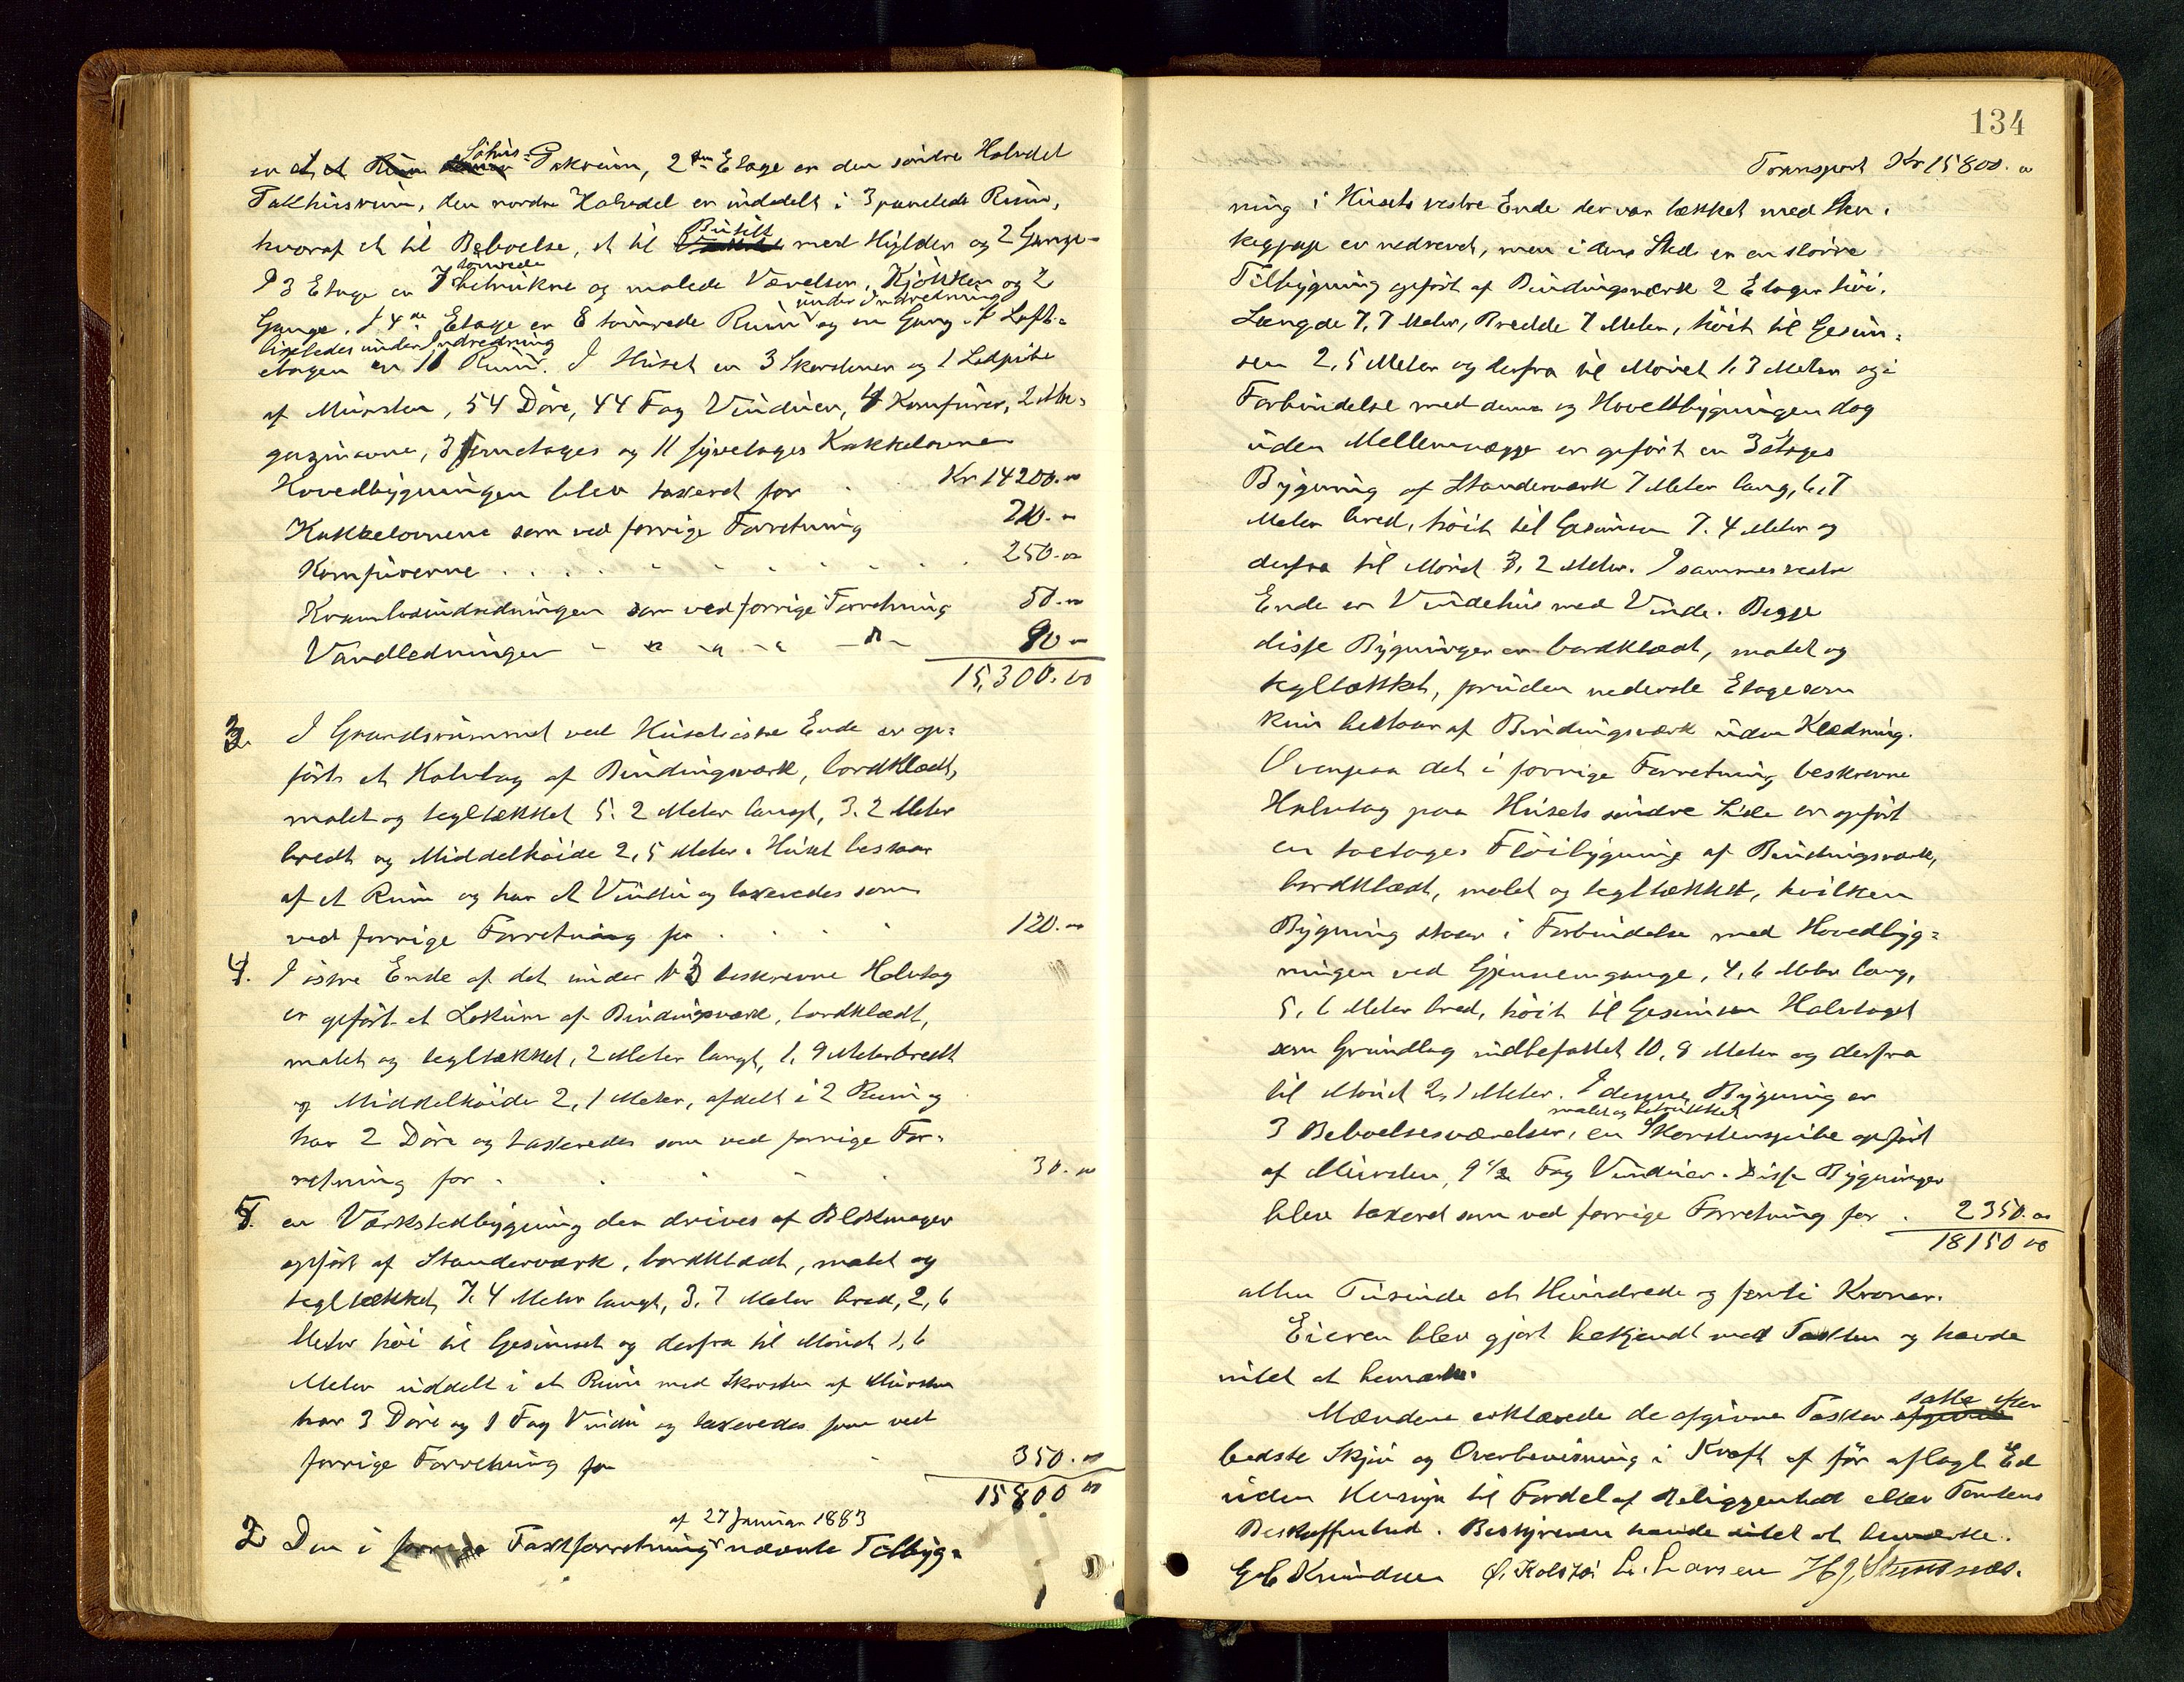 er et et Søhus-Pakrum, 2den Etage er den søndre Halvdel
Pakhusrum, den nordre Halvdel er inddelt i 3 panelede Rum,
hvoraf et til Beboelse, et til Butik med Hylder og 2 Gange.
I 3 Etage er 7 tømrede betrukne og malede Værelser, Kjøkken og 2
Gange. I 4de Etage er 8 tømrede Rum under Indredning og en Gang. I Loft-
etagen er 11 Rum ligeledes under Indredning. I Huset er 3 Skorstener og 1 Ledpibe
af Mursten, 54 Døre, 44 Fag Vinduer, 4 Komfurer, 2 Ma-
gazinovne, 3 femetages og 11 fyretages Kakkelovne
Hovedbygningen blev taxeret for Kr 14200.00
Kakkelovnene som ved forrige Forretning 210.00
Komfurerne 250.00
Kramboindredningen som ved forrige Forretning 50.00
Vandledningen 90.00
15,300.00
3. I Grundsrummet ved Husets østre Ende er op-
ført et Halvtag af Bindingsværk, bordklædt,
malet og tegltækket 5.2 Meter langt, 3.2 Meter
bredt og Middelhøide 2,5 Meter. Huset bestaar
af et Rum og har et Vindu og taxeredes som
ved forrige Forretning for 120.00
4. I østre Ende af det under N 3 beskrevne Halvtag
er opført et Lokum af Bindingsværk, bordklædt,
malet og tegltækket, 2 Meter langt, 1,9 Meter bredt
og Middelhøide 2,1 Meter, afdelt i 2 Rum og
har 2 Døre og taxeredes som ved forrige For-
retning for 30.00
5. en Værkstedbygning der drives af Blokmager
opført af Standerværk, bordklædt, malet og
tegltækket, 7.4 Meter langt, 3.7 Meter bred, 2,6
Meter høi til Gesimset og derfra til Mønet 1,6
Meter inddelt i et Rum med Skorsten af Mursten
har 3 Døre og 1 Fag Vindu og taxeredes som ved
forrige Forretning for 350.00
15800 00
2. Den i Taxtforretning af 27 Januar 1883 nævnte Tilbyg-
134
Transport Kr 15800.00
ning i Husets vestre Ende der var tækket med Sten-
kegpap er nedrevet, men i dens Sted er en større
Tilbygning opført af Bindingsværk 2 Etager høi.
Længde 7,7 Meter, Bredde 7 Meter, høit til Gesim-
sen 2,5 Meter og derfra til Mønet 1,3 Meter og i
Forbindelse med denne og Hovedbygningen dog
uden Mellemvægge er opført en 3 etages
Bygning af Standerværk 7 Meter lang, 6,7
Meter bred, høit til Gesimsen 7.4 Meter og
derfra til Mønet 3,2 Meter. I sammes vestre
Ende er Vindehus med Vinde. Begge
disse Bygninger er bordklædt, malet og
tegltækket, foruden nederste Etage som
kun bestaar af Bindingsværk uden Klædning.
Ovenpaa det i forrige Forretning beskrevne
Halvtag paa Husets søndre Side er opført
en toetages Fløibygning af Bindingsværk,
bordklædt, malet og tegltækket, hvilken
Bygning staar i Forbindelse med Hovedbyg-
ningen ved Gjennemgange, 4,6 Meter lang,
5,6 Meter bred, høit til Gesimsen Halvtaget
som Grundlag indbefattet 10,8 Meter og derfra
til Mønet 2,1 Meter. I denne Bygning er
3 Beboelsesværelser, malet og betrukket en Skorstenspibe opført
af Mursten, 9 1/2 Fag Vinduer. Disse Bygninger
blev taxeret som ved forrige Forretning for 2350.00
18150 00
atten Tusinde et Hundrede og femti Kroner.
Eieren blev gjort bekjendt med Taxten og havde
intet at bemærke.
Mændene erklærede de afgivne Taxter afgivne satte efter
bedste Skjøn og Overbevisning i Kraft af før aflagt Ed
uden Hensyn til Fordel af Beliggenhed eller Tomtens
Beskaffenhed. Bestyreren havde intet at bemærke.
G C Knudsen Ø. Kolstø L. Larsen H J Stensnæs.